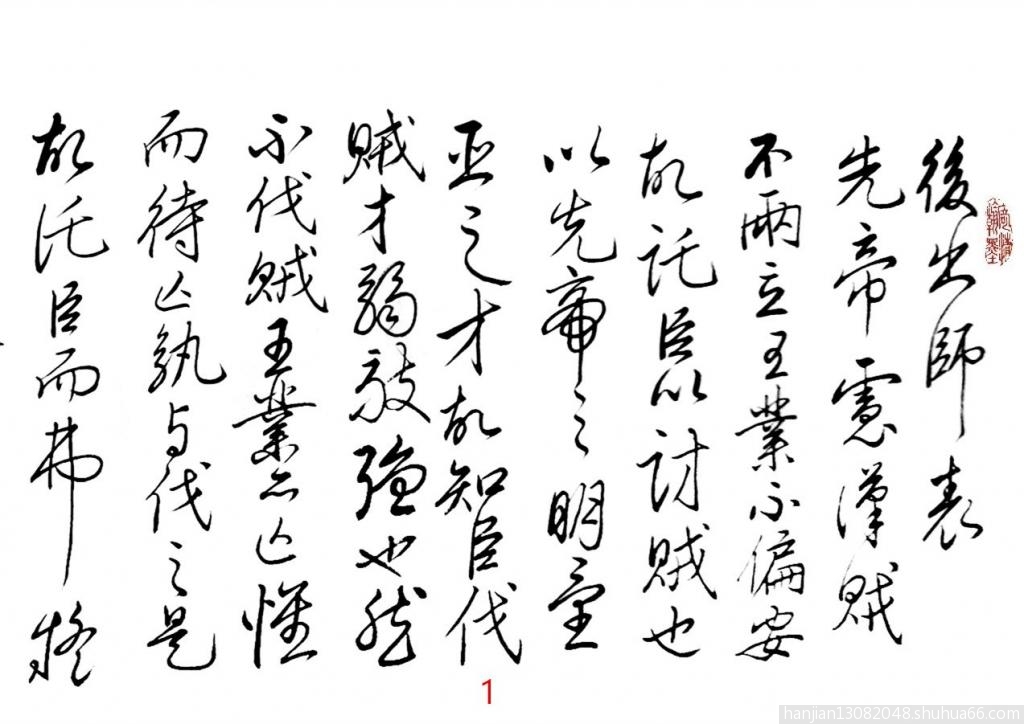 後出師表
先帝慮漢賊
不兩立王業不偏安
故託臣以討賊也
以先帝之明量
臣之才故知臣伐
賊才弱敵強也然
不伐賊王業亦亡惟
而待亡孰与伐之是
故託臣而弗疑
1
hanjian13082048.shuhua66.com